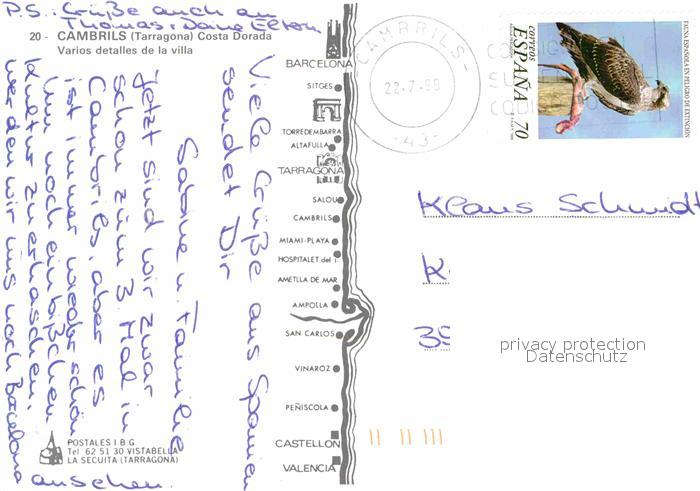 P.S.: Grüße auch an
Thomas + Dana Elton
20 - CAMBRILS (Tarragona) Costa Dorada
Varios detalles de la villa
Viele Grüße aus Spanien
sendet Dir
Sabine u. Familie
Jetzt sind wir zwar
schon zum 3. Mal in
Cambrils, aber es
ist immer wieder schön
Um noch ein bißchen
Kultur zu erhaschen,
werden wir uns noch Barcelona
anschauen.
POSTALES I B G
Tel 62 51 30 VISTABELLA
LA SECUITA (TARRAGONA)
BARCELONA
SITGES
TORREDEMBARRA
ALTAFULLA
TARRAGONA
SALOU
CAMBRILS
MIAMI-PLAYA
HOSPITALET del I.
AMETLLA DE MAR
AMPOLLA
SAN CARLOS
VINAROZ
PEÑISCOLA
CASTELLON
VALENCIA
CAMBRILS
22-7-98
-43-
CORREOS
ESPAÑA 70
FAUNA ESPAÑOLA EN PELIGRO DE EXTINCION
Klaus Schmidt
K
39
privacy protection
Datenschutz